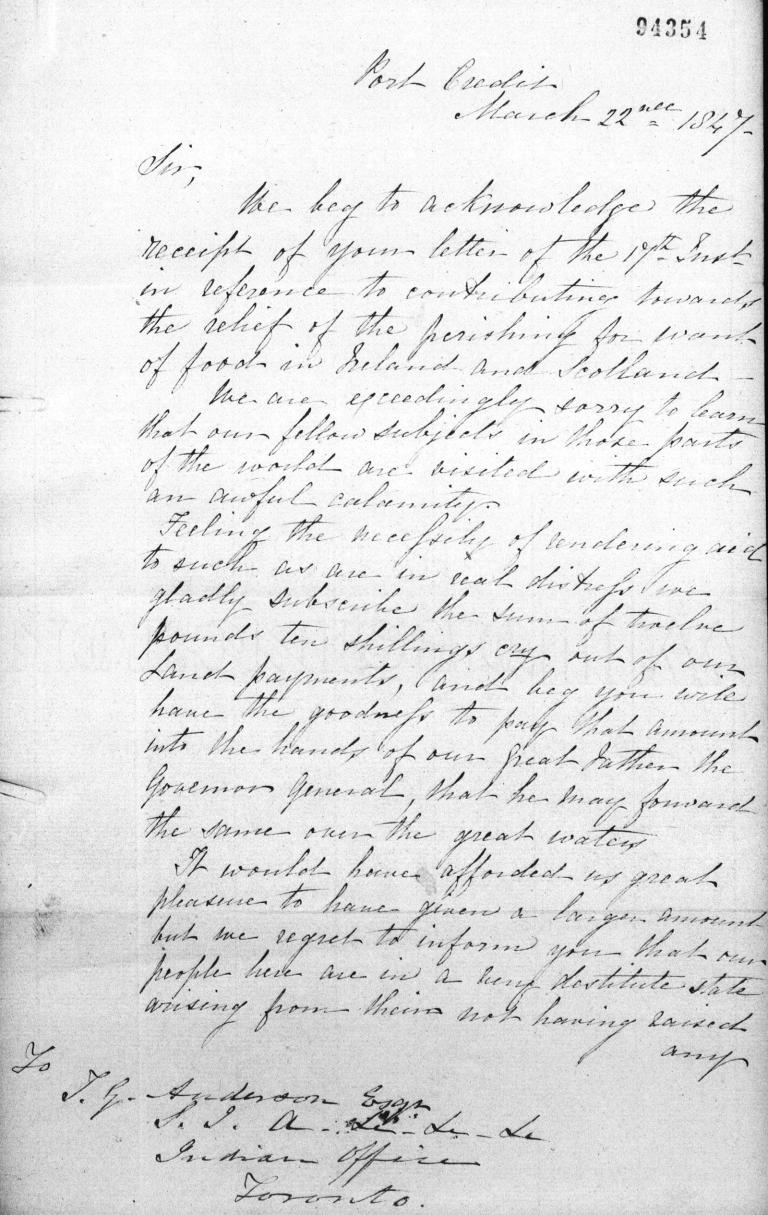 94354
Port Credit
March 22nd 1847-
Sir,
We beg to acknowledge the
receipt of your letter of the 17th Inst
in reference to contributing towards
the relief of the perishing for want
of food in Ireland and Scotland -
We are exceedingly sorry to learn
that our fellow subjects in those parts
of the world are visited with such
an awful calamity.
Feeling the necessity of rendering aid
to such as are in real distress we
gladly subscribe the sum of twelve
pounds ten shillings cry out of our
Land payments, and beg you will
have the goodness to pay that amount
into the hands of our Great Father the
Governor General, that he may forward
the same over the great waters
It would have afforded us great
pleasure to have given a larger amount
but we regret to inform you that our
people here are in a very destitute state
arising from their not having raised
any
To
T. G. Anderson Esqr
S. I. A. &c - &c - &c
Indian Office
Toronto.